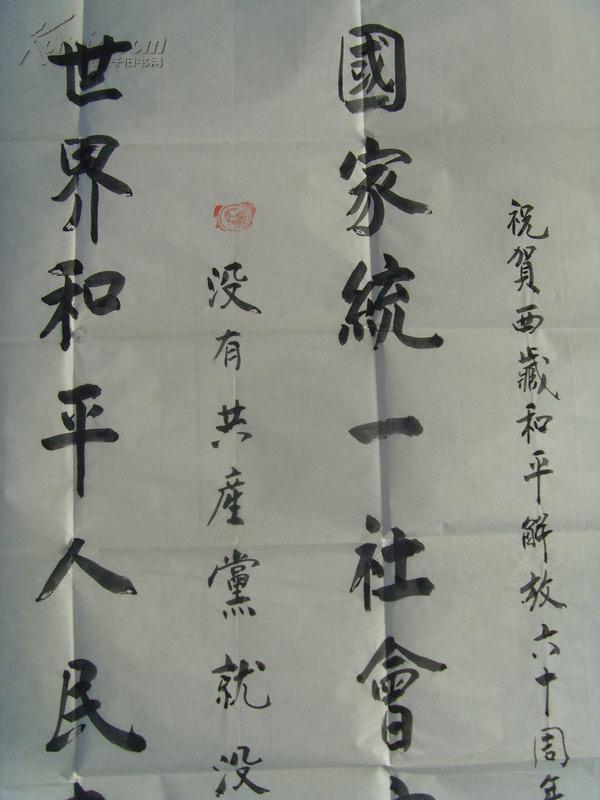 祝賀西藏和平解放六十周年
國家統一社會
没有共産黨就没
世界和平人民
千旧书网